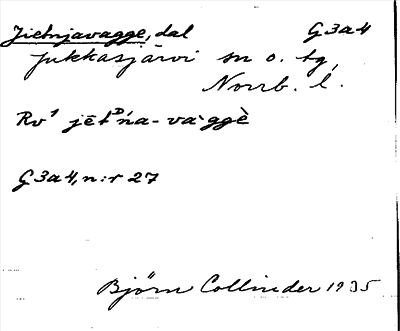 Jietnjavagge, dal G3a4
Jukkasjärvi sn o. tg,
Norrb. l.
Rv¹ jētᴰńa-va`ggè
G3a4, n:r 27
Björn Collinder 1935